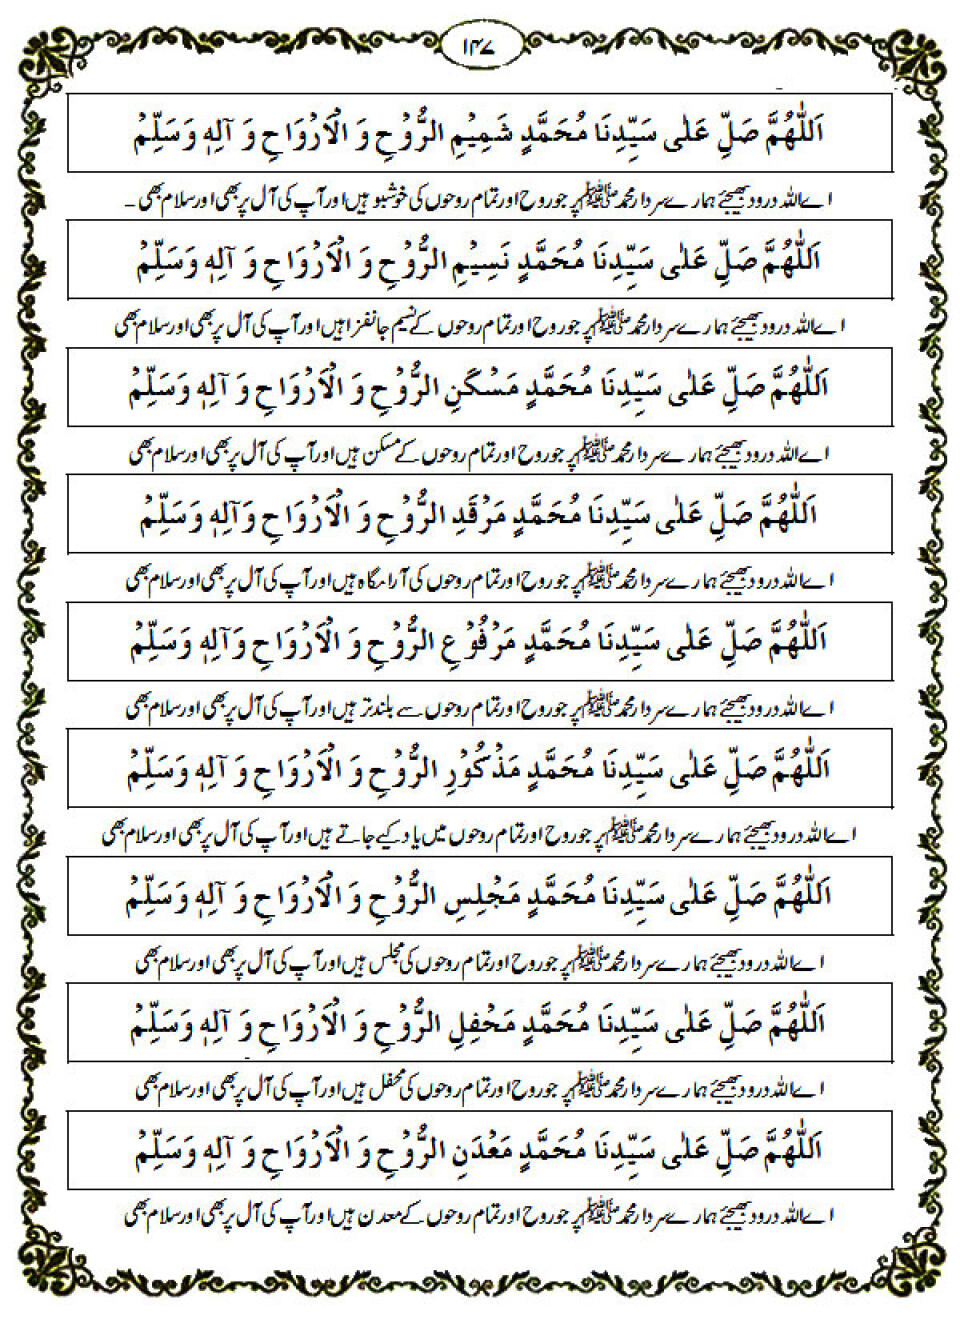 ۱۴۷
اَللّٰهُمَّ صَلِّ عَلٰى سَيِّدِنَا مُحَمَّدٍ شَمِيْمِ الرُّوْحِ وَ الْاَرْوَاحِ وَ آلِهٖ وَسَلِّمْ
اے اللہ درود بھیجئے ہمارے سردار محمد ﷺ پر جو روح اور تمام روحوں کی خوشبو ہیں اور آپ کی آل پر بھی اور سلام بھی ۔
اَللّٰهُمَّ صَلِّ عَلٰى سَيِّدِنَا مُحَمَّدٍ نَسِيْمِ الرُّوْحِ وَ الْاَرْوَاحِ وَ آلِهٖ وَسَلِّمْ
اے اللہ درود بھیجئے ہمارے سردار محمد ﷺ پر جو روح اور تمام روحوں کے نسیم جانفزا ہیں اور آپ کی آل پر بھی اور سلام بھی
اَللّٰهُمَّ صَلِّ عَلٰى سَيِّدِنَا مُحَمَّدٍ مَسْكَنِ الرُّوْحِ وَ الْاَرْوَاحِ وَ آلِهٖ وَسَلِّمْ
اے اللہ درود بھیجئے ہمارے سردار محمد ﷺ پر جو روح اور تمام روحوں کے مسکن ہیں اور آپ کی آل پر بھی اور سلام بھی
اَللّٰهُمَّ صَلِّ عَلٰى سَيِّدِنَا مُحَمَّدٍ مَرْقَدِ الرُّوْحِ وَ الْاَرْوَاحِ وَآلِهٖ وَسَلِّمْ
اے اللہ درود بھیجئے ہمارے سردار محمد ﷺ پر جو روح اور تمام روحوں کی آرامگاہ ہیں اور آپ کی آل پر بھی اور سلام بھی
اَللّٰهُمَّ صَلِّ عَلٰى سَيِّدِنَا مُحَمَّدٍ مَرْفُوْعِ الرُّوْحِ وَ الْاَرْوَاحِ وَآلِهٖ وَسَلِّمْ
اے اللہ درود بھیجئے ہمارے سردار محمد ﷺ پر جو روح اور تمام روحوں سے بلندتر ہیں اور آپ کی آل پر بھی اور سلام بھی
اَللّٰهُمَّ صَلِّ عَلٰى سَيِّدِنَا مُحَمَّدٍ مَذْكُوْرِ الرُّوْحِ وَ الْاَرْوَاحِ وَ آلِهٖ وَسَلِّمْ
اے اللہ درود بھیجئے ہمارے سردار محمد ﷺ پر جو روح اور تمام روحوں میں یاد کیے جاتے ہیں اور آپ کی آل پر بھی اور سلام بھی
اَللّٰهُمَّ صَلِّ عَلٰى سَيِّدِنَا مُحَمَّدٍ مَجْلِسِ الرُّوْحِ وَ الْاَرْوَاحِ وَ آلِهٖ وَسَلِّمْ
اے اللہ درود بھیجئے ہمارے سردار محمد ﷺ پر جو روح اور تمام روحوں کی مجلس ہیں اور آپ کی آل پر بھی اور سلام بھی
اَللّٰهُمَّ صَلِّ عَلٰى سَيِّدِنَا مُحَمَّدٍ مَحْفِلِ الرُّوْحِ وَ الْاَرْوَاحِ وَ آلِهٖ وَسَلِّمْ
اے اللہ درود بھیجئے ہمارے سردار محمد ﷺ پر جو روح اور تمام روحوں کی محفل ہیں اور آپ کی آل پر بھی اور سلام بھی
اَللّٰهُمَّ صَلِّ عَلٰى سَيِّدِنَا مُحَمَّدٍ مَعْدَنِ الرُّوْحِ وَ الْاَرْوَاحِ وَ آلِهٖ وَسَلِّمْ
اے اللہ درود بھیجئے ہمارے سردار محمد ﷺ پر جو روح اور تمام روحوں کے معدن ہیں اور آپ کی آل پر بھی اور سلام بھی